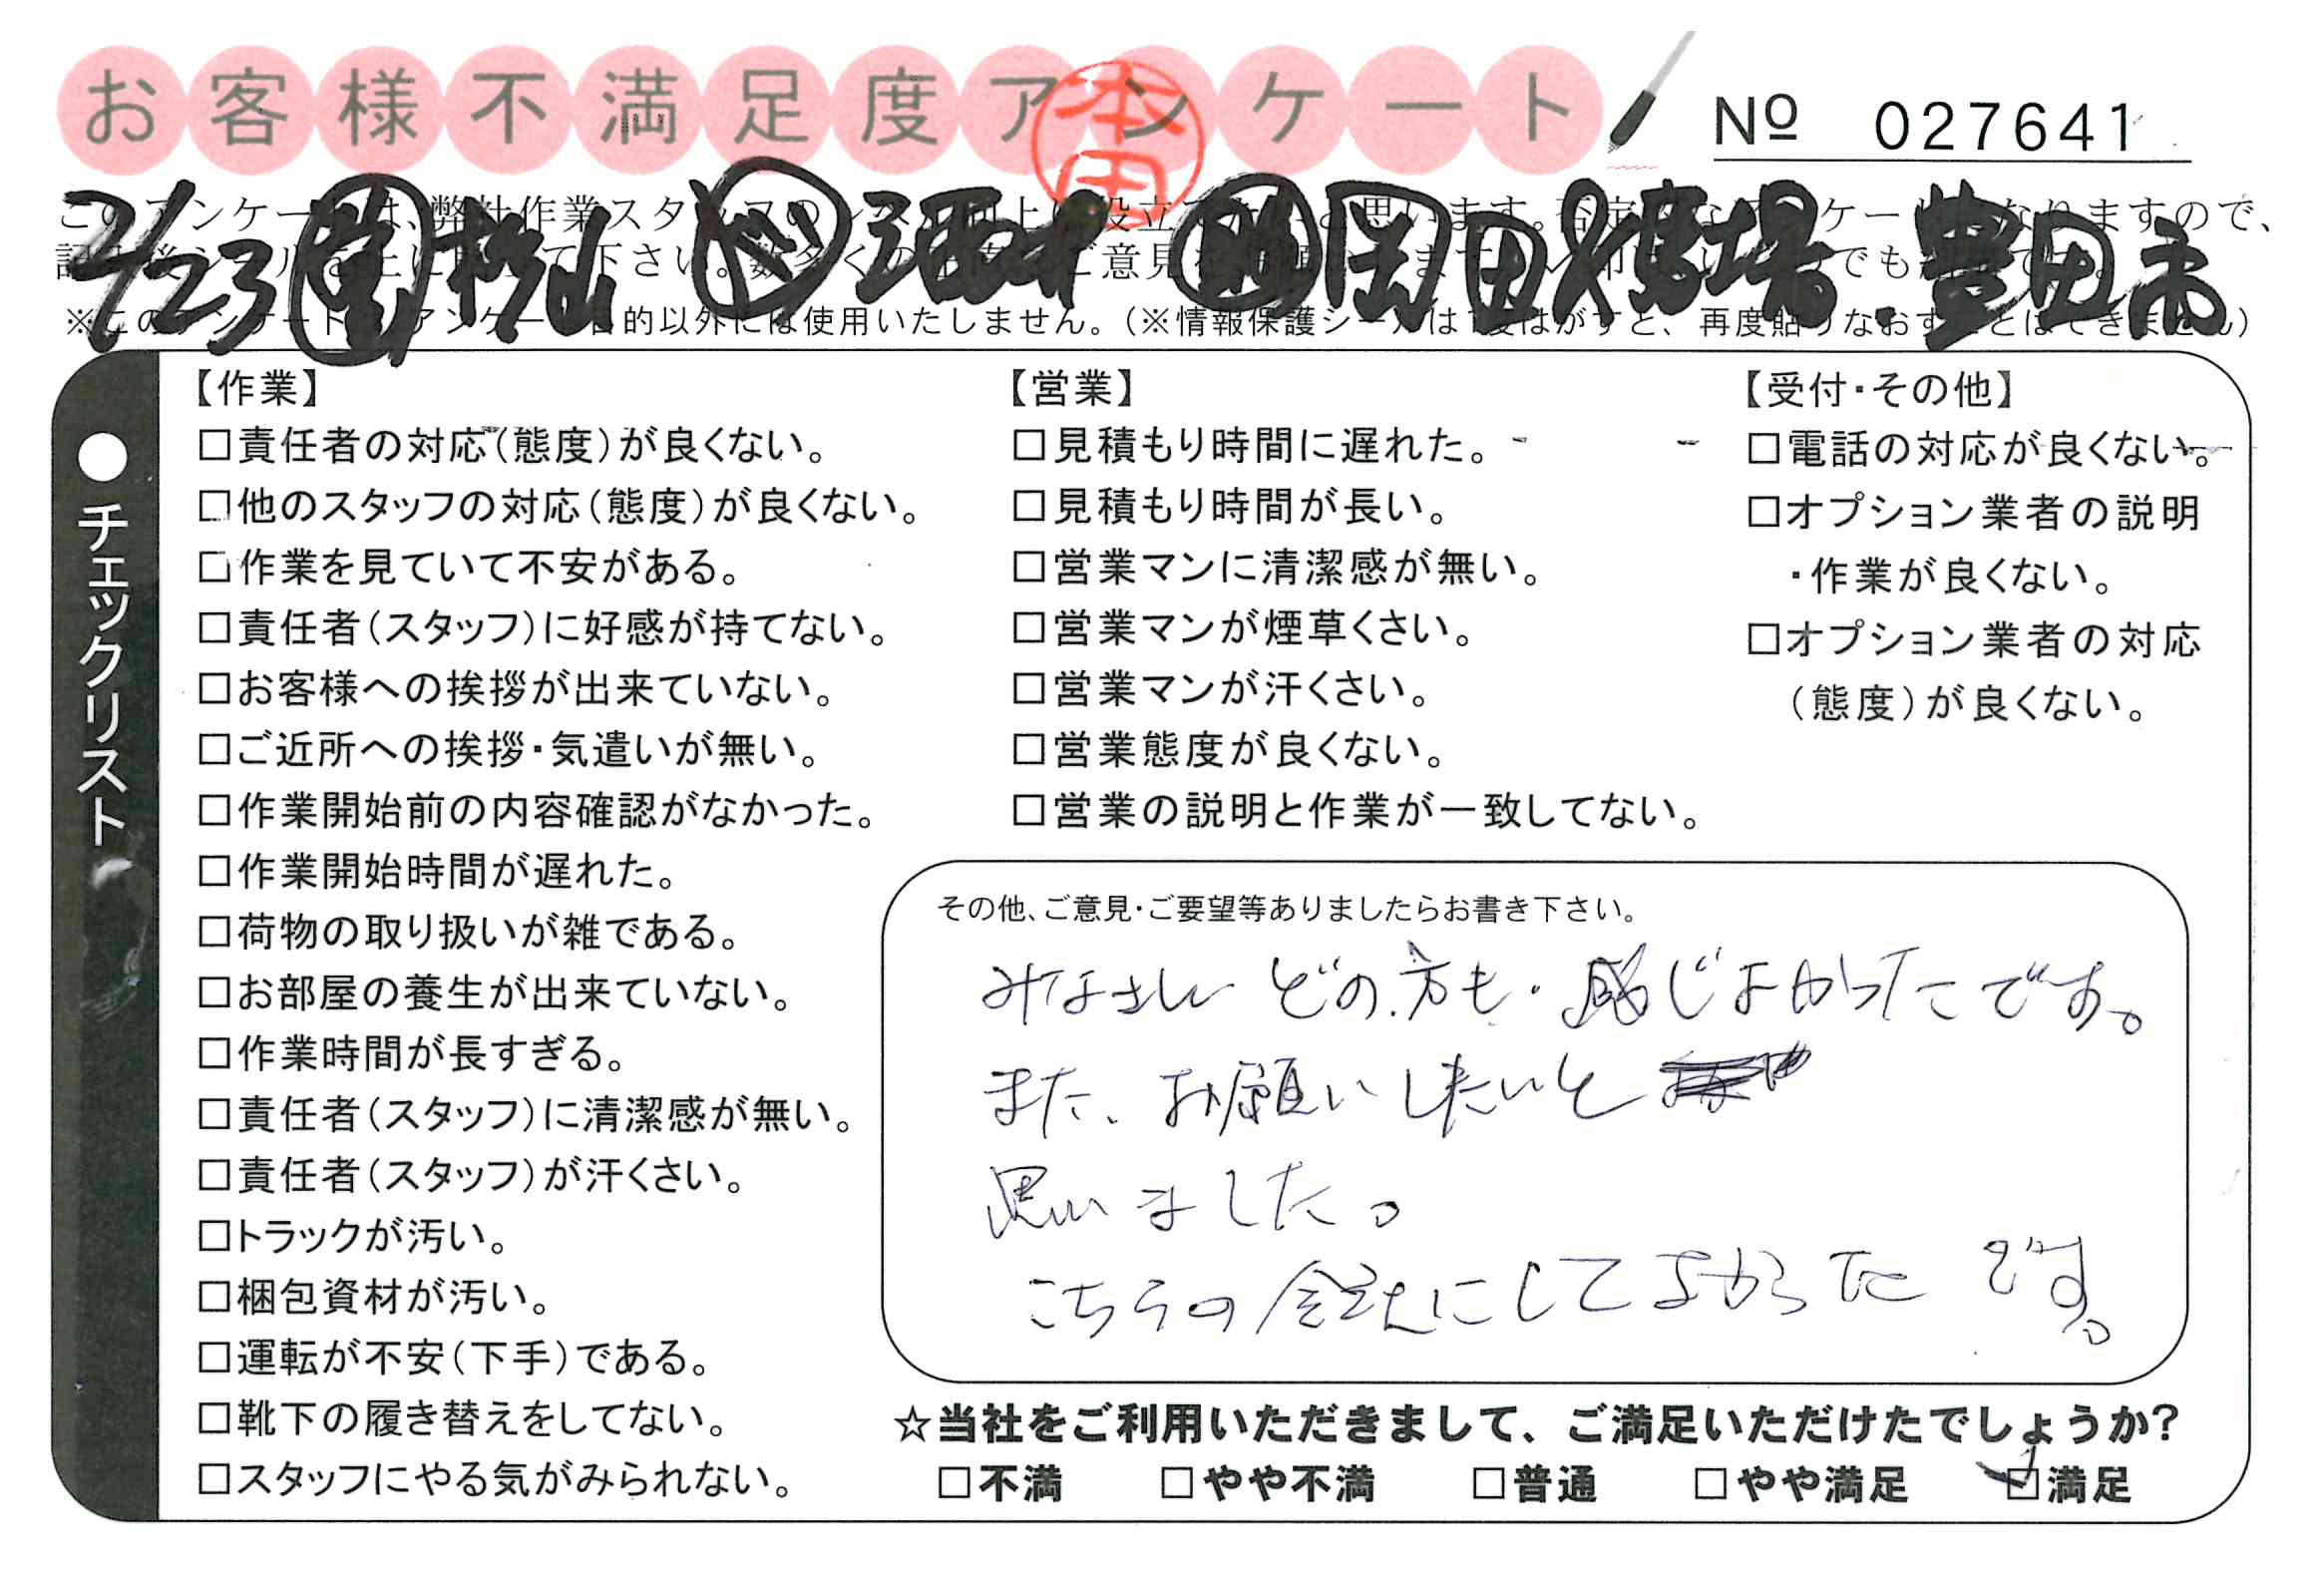 お客様不満足度アンケート
本田
Nº 027641
2/23 松山 酒井 岡田 馬場 豊田市
※このアンケートは、アンケート目的以外には使用いたしません。(※情報保護シールは1度はがすと、再度貼りなおすことはできません)
●チェックリスト
【作業】
□責任者の対応(態度)が良くない。
□他のスタッフの対応(態度)が良くない。
□作業を見ていて不安がある。
□責任者(スタッフ)に好感が持てない。
□お客様への挨拶が出来ていない。
□ご近所への挨拶・気遣いが無い。
□作業開始前の内容確認がなかった。
□作業開始時間が遅れた。
□荷物の取り扱いが雑である。
□お部屋の養生が出来ていない。
□作業時間が長すぎる。
□責任者(スタッフ)に清潔感が無い。
□責任者(スタッフ)が汗くさい。
□トラックが汚い。
□梱包資材が汚い。
□運転が不安(下手)である。
□靴下の履き替えをしてない。
□スタッフにやる気がみられない。
【営業】
□見積もり時間に遅れた。
□見積もり時間が長い。
□営業マンに清潔感が無い。
□営業マンが煙草くさい。
□営業マンが汗くさい。
□営業態度が良くない。
□営業の説明と作業が一致してない。
【受付・その他】
□電話の対応が良くない。
□オプション業者の説明
・作業が良くない。
□オプション業者の対応
(態度)が良くない。
その他、ご意見・ご要望等ありましたらお書き下さい。
みなさん どの方も・感じよかったです。
また、お願いしたいと
思いました。
こちらの会社にしてよかったです。
☆当社をご利用いただきまして、ご満足いただけたでしょうか?
□不満 □やや不満 □普通 □やや満足 ☑満足